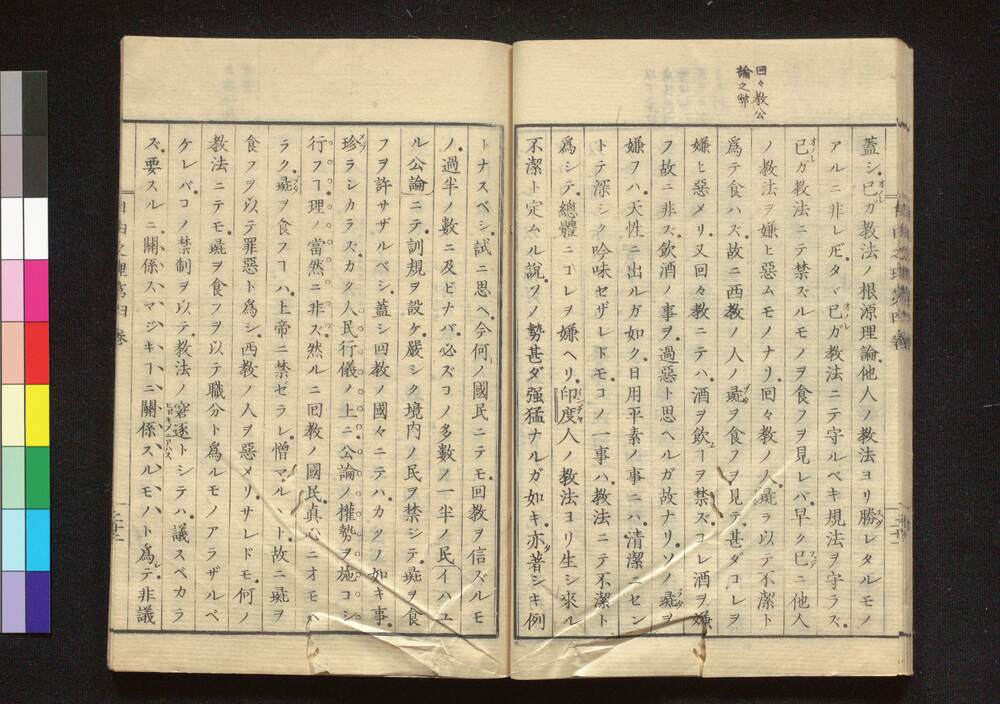 回々教公
論之幣
蓋シ己ガ教法ノ根源理論他人ノ教法ヨリ勝レタルモノ
アルニ非レ𪜈タヾ己ガ教法ニテ守ルベキ規法ヲ守ラズ
己ガ教法ニテ禁ズルモノヲ食フヲ見レバ早ク已ニ他人
ノ教法ヲ嫌ヒ惡ムモノナリ回々教ノ人彘ヲ以テ不潔ト
爲テ食ハズ故ニ西教ノ人ノ彘ヲ食フヲ見テ甚ダコレヲ
嫌ヒ惡メリ又回々教ニテハ酒ヲ飲ヿヲ禁ズコレ酒ヲ嫌
フ故ニ非ズ飲酒ノ事ヲ過惡ト思ヘルガ故ナリソノ彘ヲ
嫌フハ天性ニ出ルガ如ク日用平素ノ事ニハ清潔ニセン
トテ深シク吟味セザレドモコノ一事ハ教法ニテ不潔ト
爲シテ總體ニコレヲ嫌ヘリ印度人ノ教法ヨリ生シ來ル
不潔ト定ムル説ソノ勢甚ダ强猛ナルガ如キ亦著シキ例
トナスベシ試ニ思ヘ今何ノ國民ニテモ回教ヲ信ズルモ
ノ過半ノ數ニ及ビナバ必ズコノ多數ノ一半ノ民イハユ
ル公論ニテ訓規ヲ設ケ嚴シク境内ノ民ヲ禁ジテ彘ヲ食
フヲ許サザルベシ蓋シ回教ノ國々ニテハカクノ如キ事
珍ラシカラズカク人民行儀ノ上ニ公論ノ權勢ヲ施コシ
行フヿ理ノ當然ニ非ズ然ルニ回教ノ國民真心ニオモハ
ラク彘ヲ食フヿハ上帝ニ禁ゼラレ憎マルヽト故ニ彘ヲ
食フヲ以テ罪惡ト爲シ西教ノ人ヲ惡メリサレドモ何ノ
教法ニテモ彘ヲ食フヲ以テ職分ト爲ルモノアラザルベ
ケレバコノ禁制ヲ以テ教法ノ窘逐トシテハ議スベカラ
ズ要スルニ關係スマジキヿニ關係スルモノト爲テ非議
自由之理第四卷